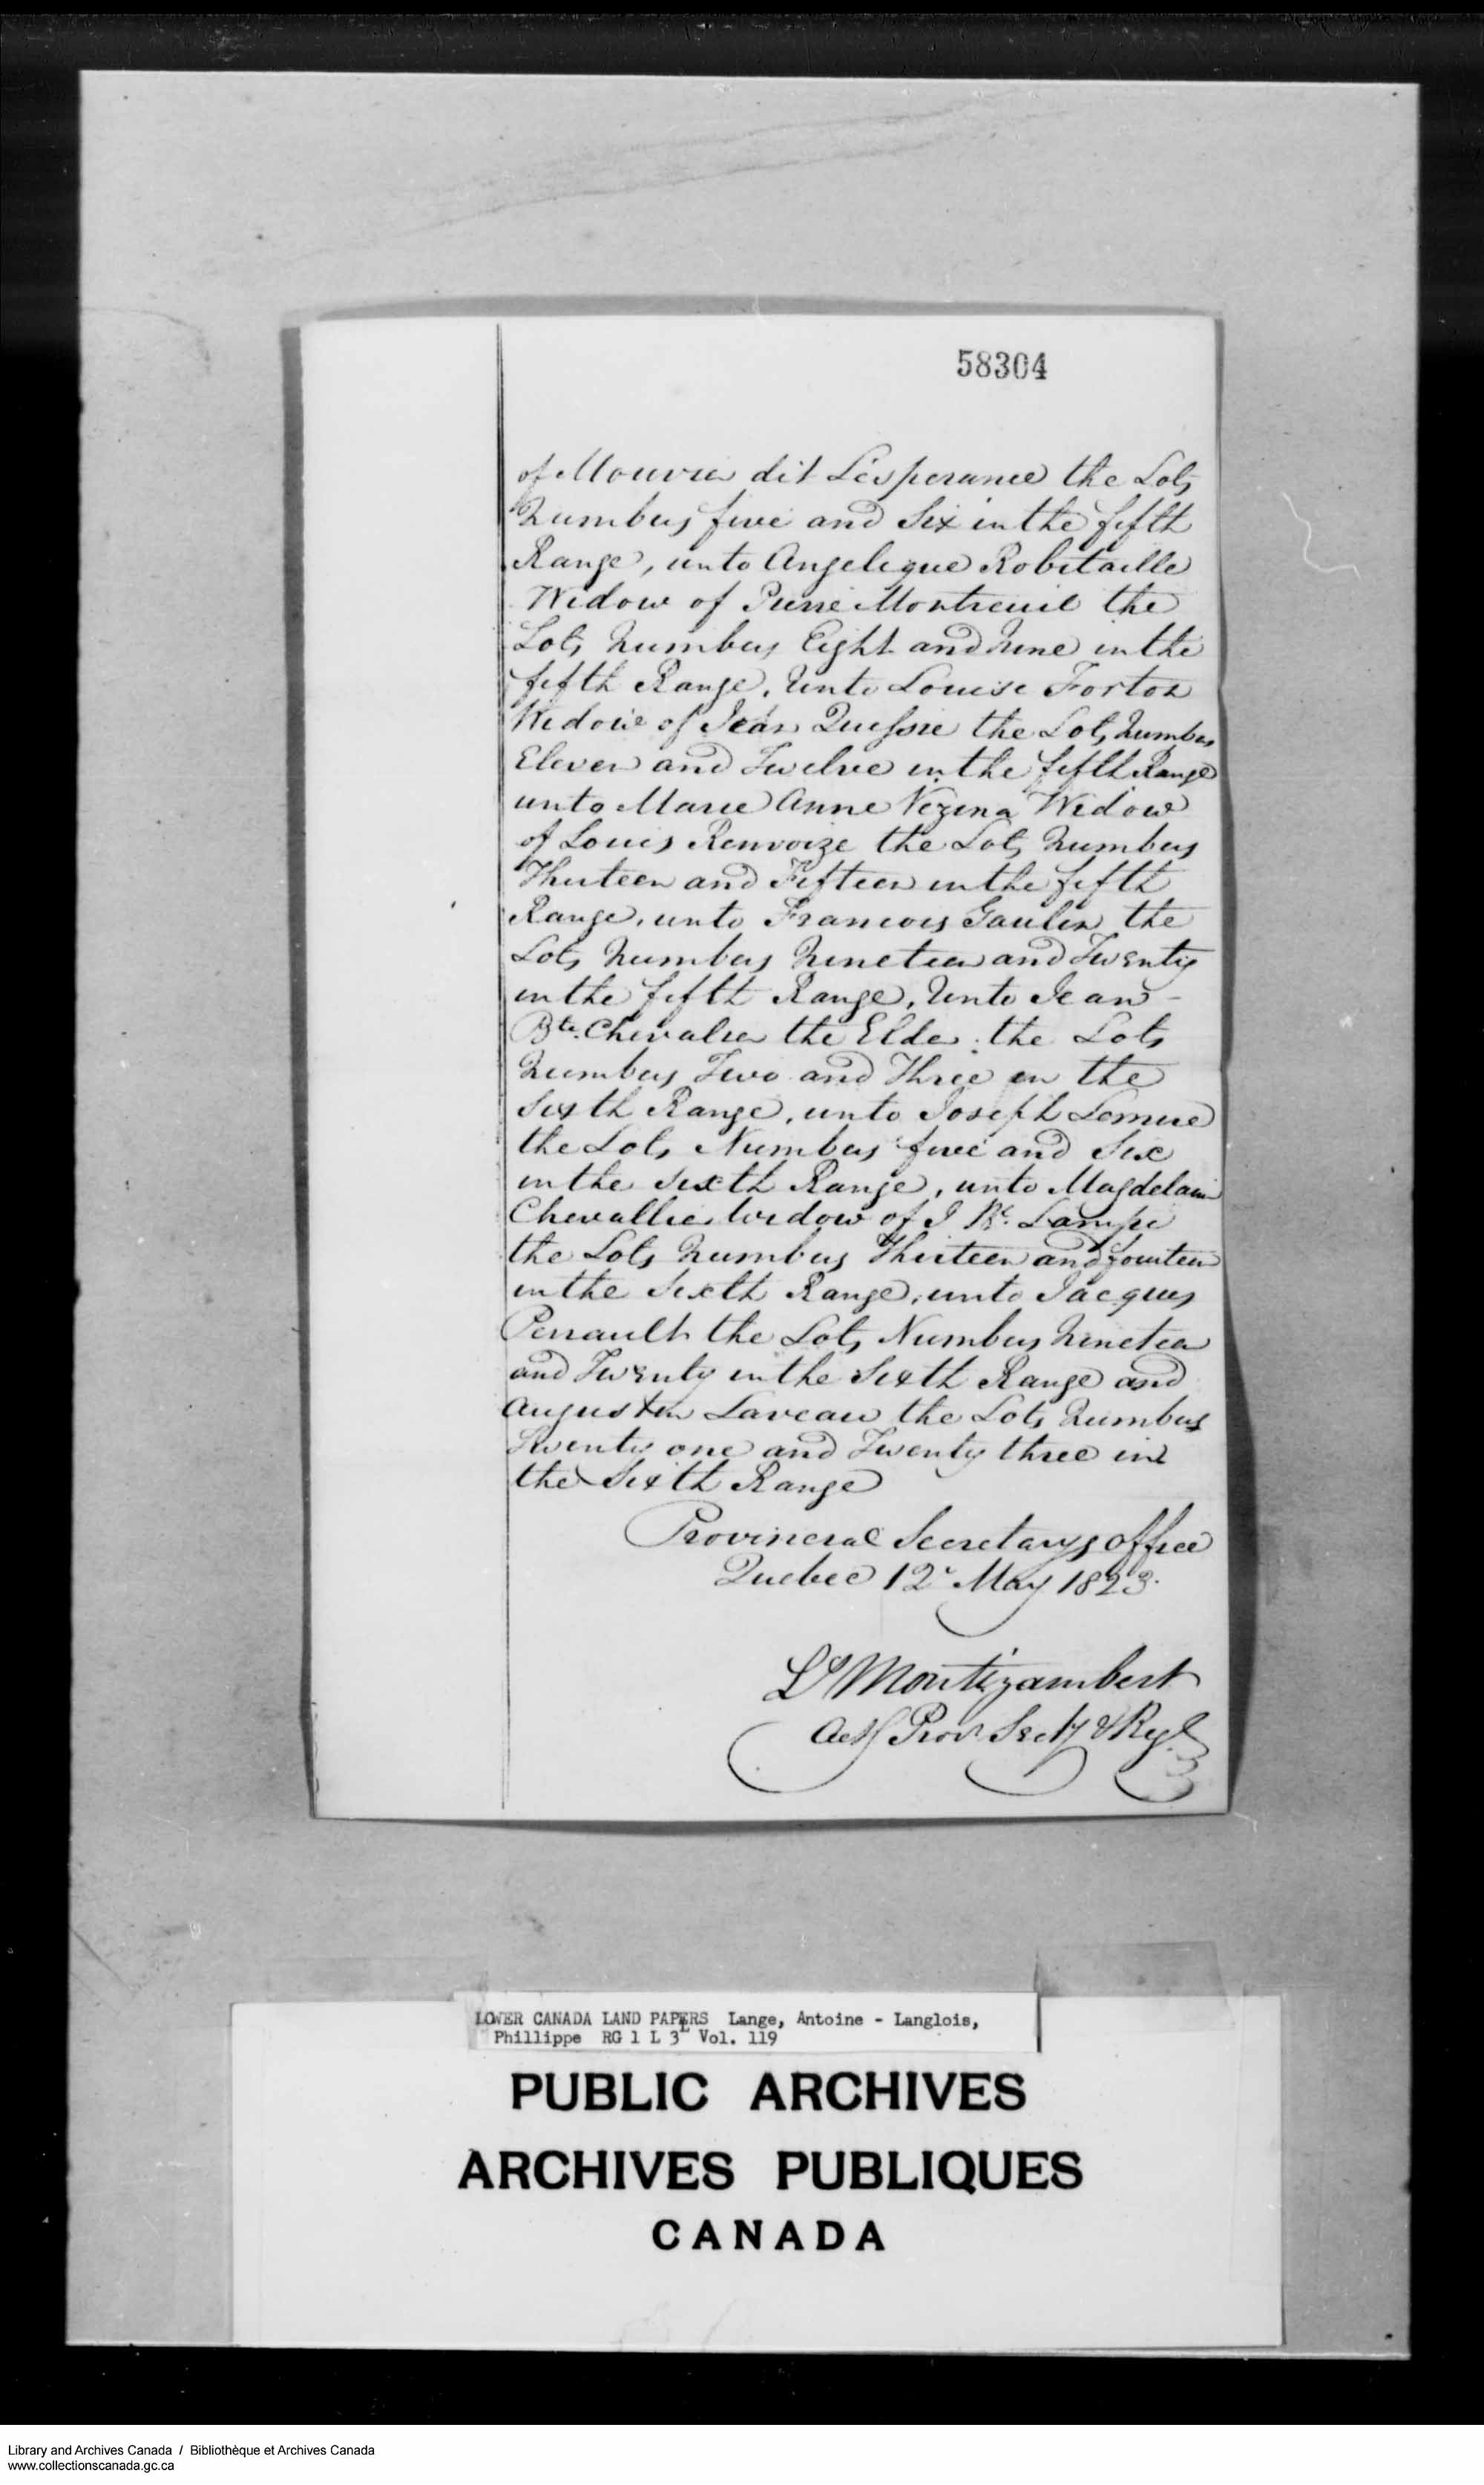 58304
of Mouvier dit Lésperance the Lots
Numbers five and Six in the fifth
Range, unto Angelique Robitaille
Widow of Pierre Montreuil the
Lots Numbers Eight and Nine in the
fifth Range, Unto Louise Forton
Widow of Jean the Lots Numbers
Eleven and Twelve in the fifth Range
unto Marie Anne Vezina Widow
of Louis Renvoize the Lots Numbers
Thirteen and Fifteen in the fifth
Range, unto Francois Gaulin the
Lots Numbers Nineteen and Twenty
in the fifth Range, Unto Jean-
Bte. Chevalier the Elder the Lots
Numbers Two and Three in the
Sixth Range, unto Joseph Lemire
the Lots Numbers five and Six
in the Sixth Range, unto Magdelain
Chevallier Widow of J Bt. Lampe
the Lots Numbers Thirteen and fourteen
in the Sixth Range, unto Jacques
Perrault the Lots Numbers Nineteen
and Twenty in the Sixth Range and
Augustin Laveau the Lots Numbers
Twenty one and Twenty three in
the Sixth Range
Provincial Secretarys office
Quebec 12 May 1823.
Ls Montizambert
Actg Provl Secty & Regr
LOWER CANADA LAND PAPERS Lange, Antoine - Langlois,
Phillippe RG 1 L 3L Vol. 119
PUBLIC ARCHIVES
ARCHIVES PUBLIQUES
CANADA
Library and Archives Canada / Bibliothèque et Archives Canada
www.collectionscanada.gc.ca